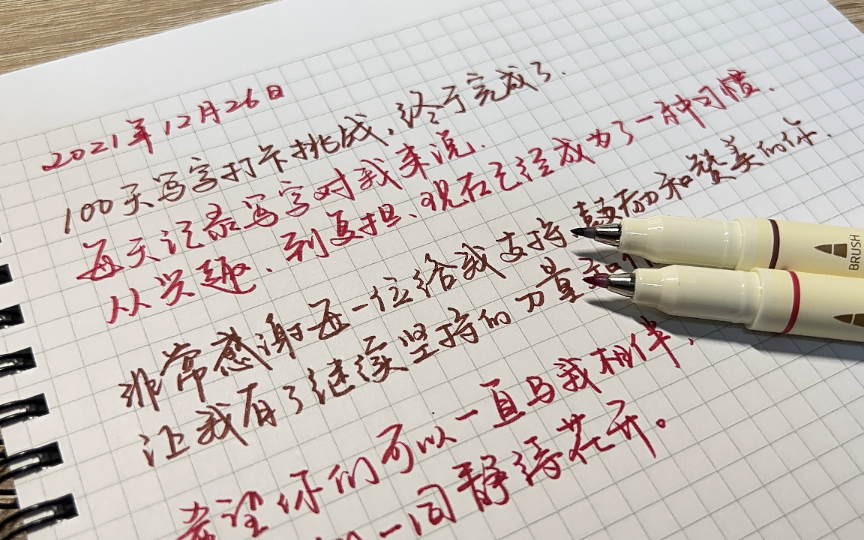 2021年12月26日
100天写字打卡挑战,终于完成了.
每天记录写字对我来说.
从兴趣、到负担、现在已经成为了一种习惯.
非常感谢每一位给我支持 鼓励和赞美的你.
让我有了继续坚持的力量和
希望你们可以一直与我相伴,
一同静待花开。
BRUSH